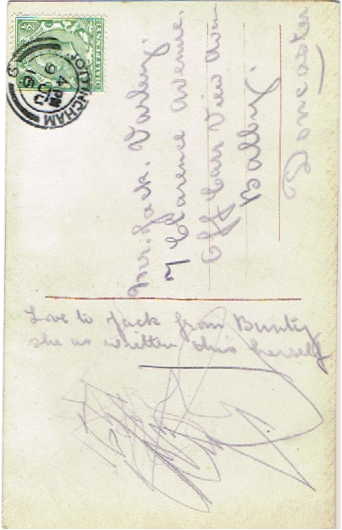 HALFPENNY
NOTTINGHAM
4 PM
Mr. Jack. Varley.
7 Clarence Avenue.
Off Carr View Aven
Balby.
Doncaster
Love to Jack from Bunty
she as written this herself